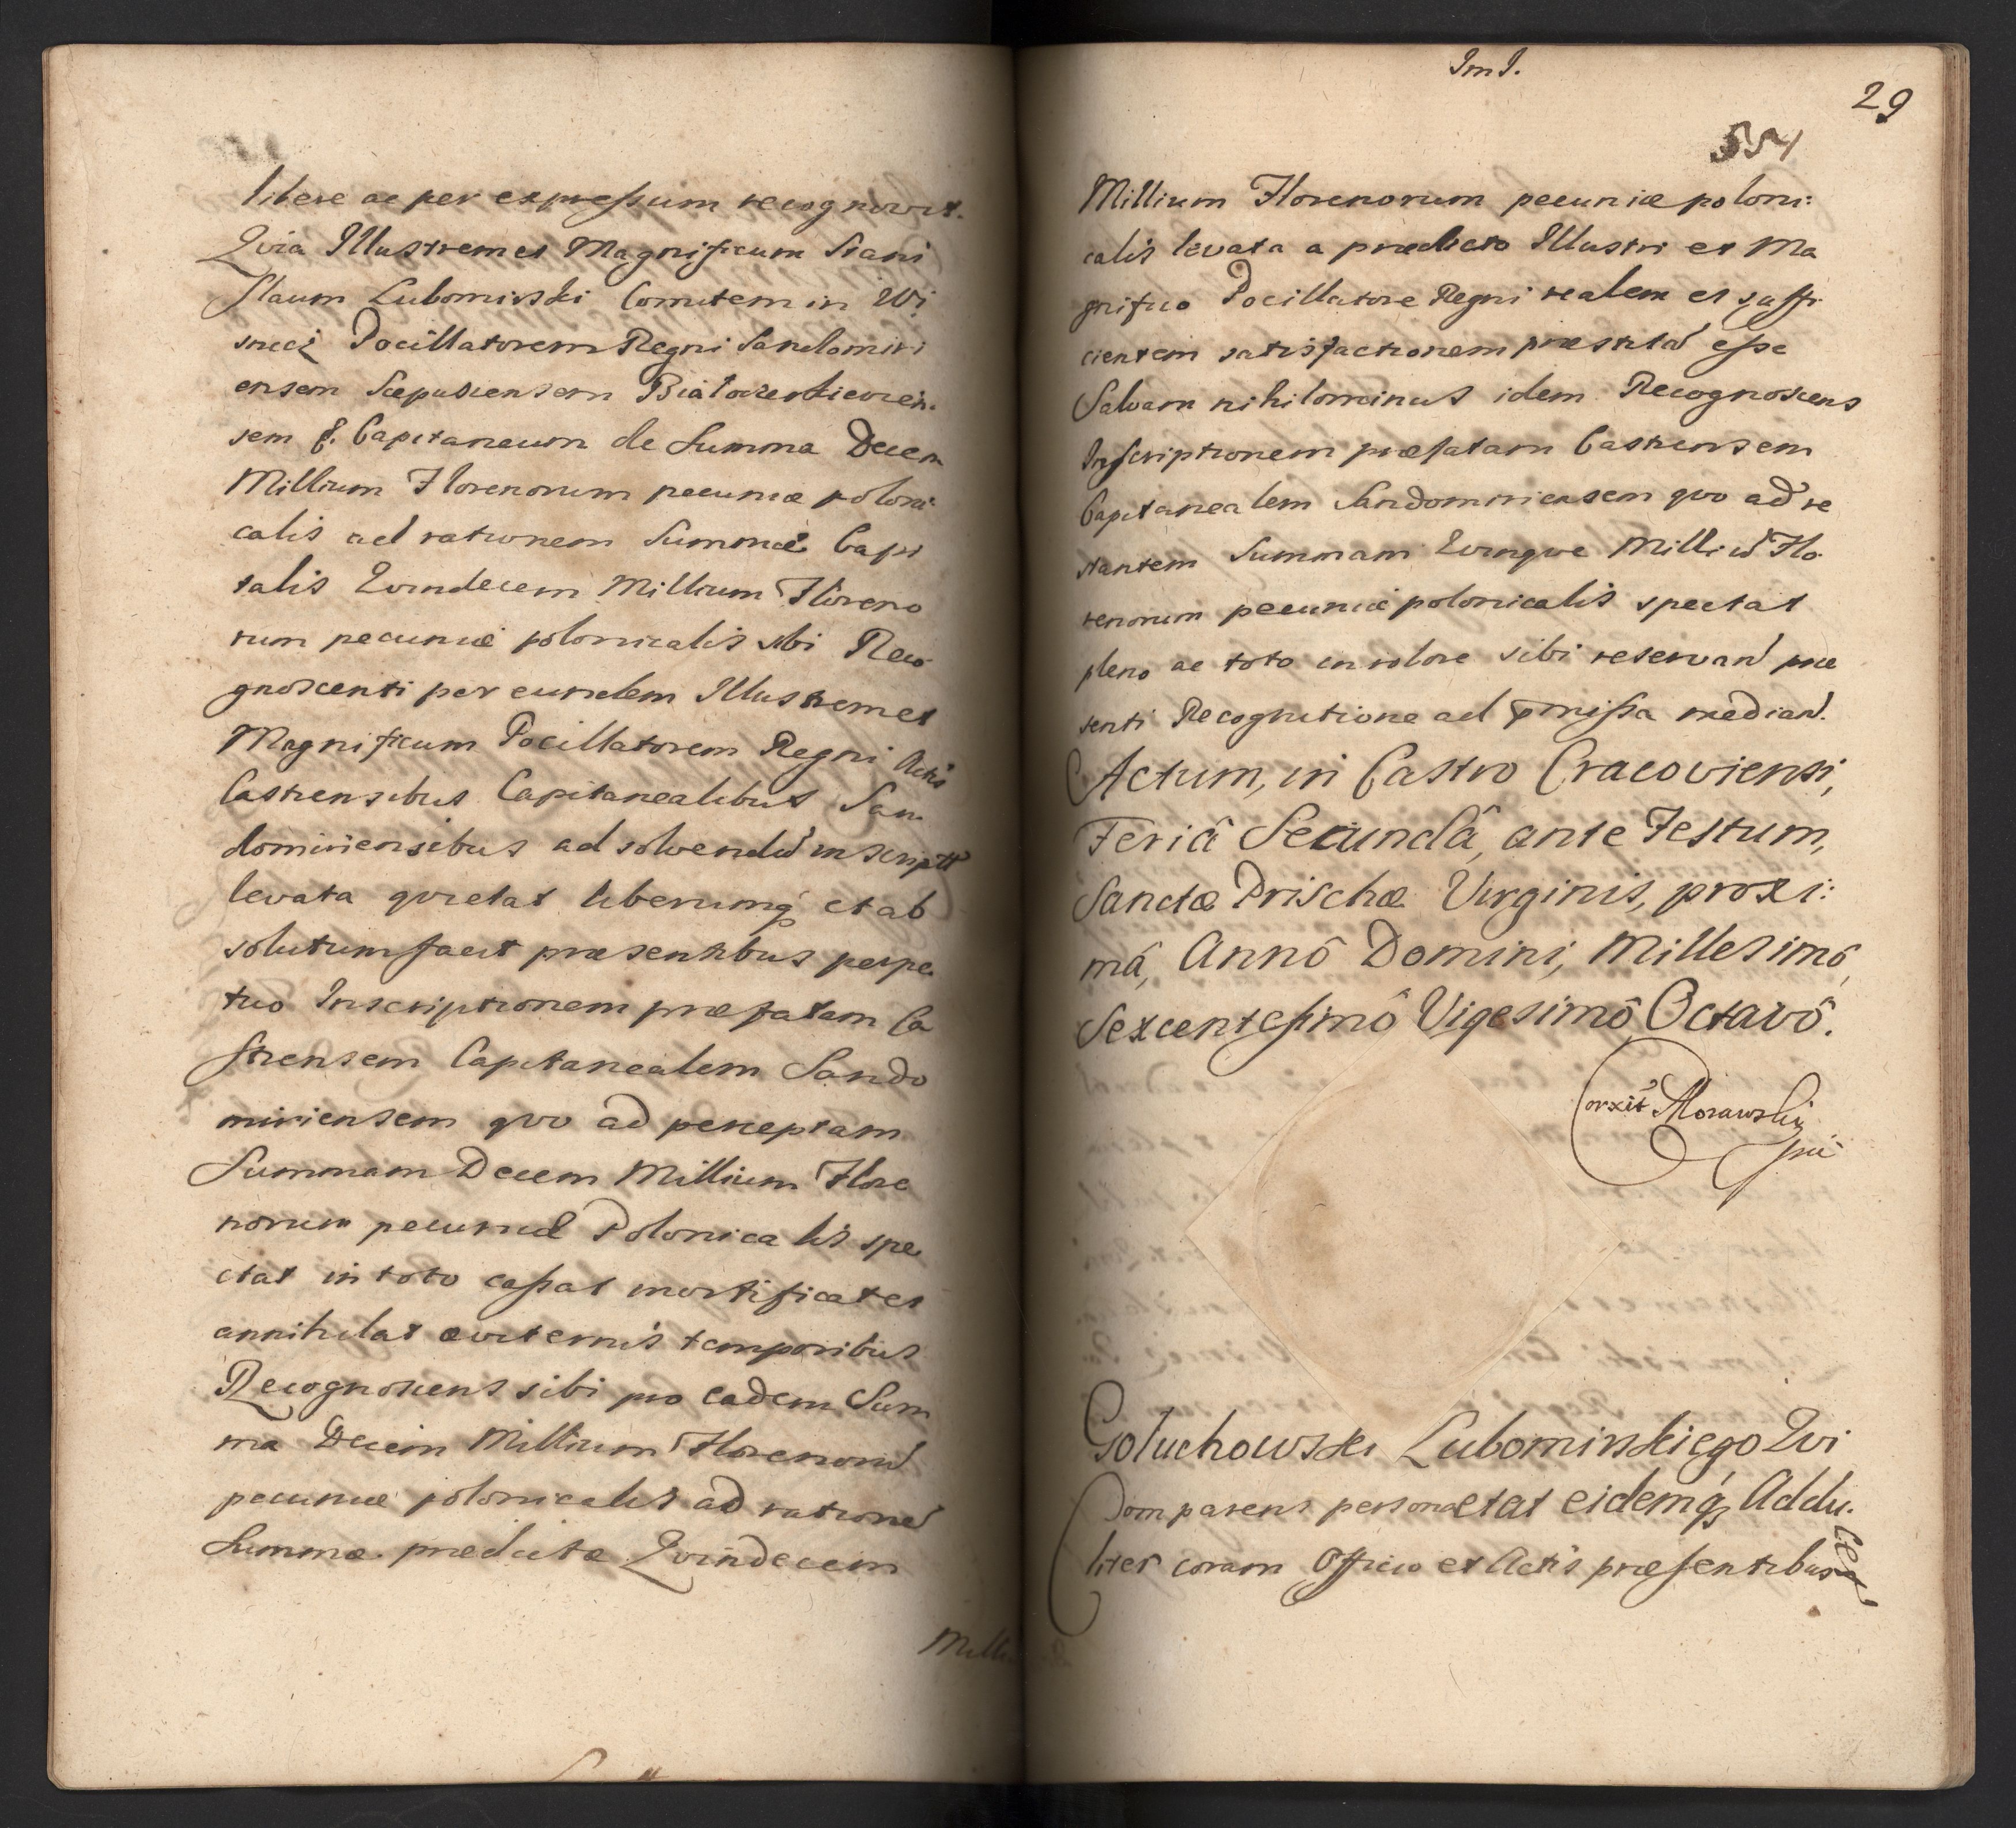 libere ac per expressum recognovit.
Qvia Illustrem et Magnificum Stani
slaum Lubomirski Comitem in Wi
snicz Pocillatorem Regni Sandomiri
ensem Scepusiensem Białocerkievien.
sem &. Capitaneum de Summa Decem
Millium Florenorum pecuniæ poloni
calis ad rationem Summæ Capi
talis Qvindecem Millium Floreno
rum pecuniæ polonicalis sibi Reco
gnoscenti per eundem Illustrem et
Magnificum Pocillatorem Regni Actis
Castrensibus Capitanealibus San
domiriensibus ad solvendū inscriptt
levata qvietat liberumq₃ et ab
solutum facit præsentibus perpe
tuo Inscriptionem præfatam Ca
strensem Capitanealem Sando
miriensem qvo ad perceptam
Summam Decem Millium Flore
norum pecuniæ Polonicalis spe
ctat in toto cassat mortificat et
annihilat æviternis temporibus
Recognoscens sibi pro eadem Sum
ma Decem Millium Florenorū
pecuniæ polonicalis ad rationē
Summæ prædictæ Qvindecem
Milli
Im I.
29
Millium Florenorum pecuniæ poloni:
calis levata a prædicto Illustri et Ma
gnifico Pocillatore Regni realem et suffi
cientem satisfactionem præstitā esse
Salvam nihilominus idem Recognoscens
Inscriptionem præfatam Castrensem
Capitanealem Sandomiriensem qvo ad re
stantem Summam Qvinqve Milliū Flo
renorum pecuniæ polonicalis spectat
pleno ac toto in robore sibi reservan̄ præ
senti Recognitione ad præmissa median̄.
Actum, in Castro Cracoviensi,
Feriâ Secundâ, ante Festum,
Sanctæ Prischæ Virginis, proxi:
mâ, Annô Domini, Millesimô,
Sexcentesimô Vigesimô Octavô.
Corxit Morawski
mp
Gołuchowski Lubomirskiego Qvi
Comparens personaetat eidemq₃ Addu.
liter coram Officio et Actis præsentibus
cit